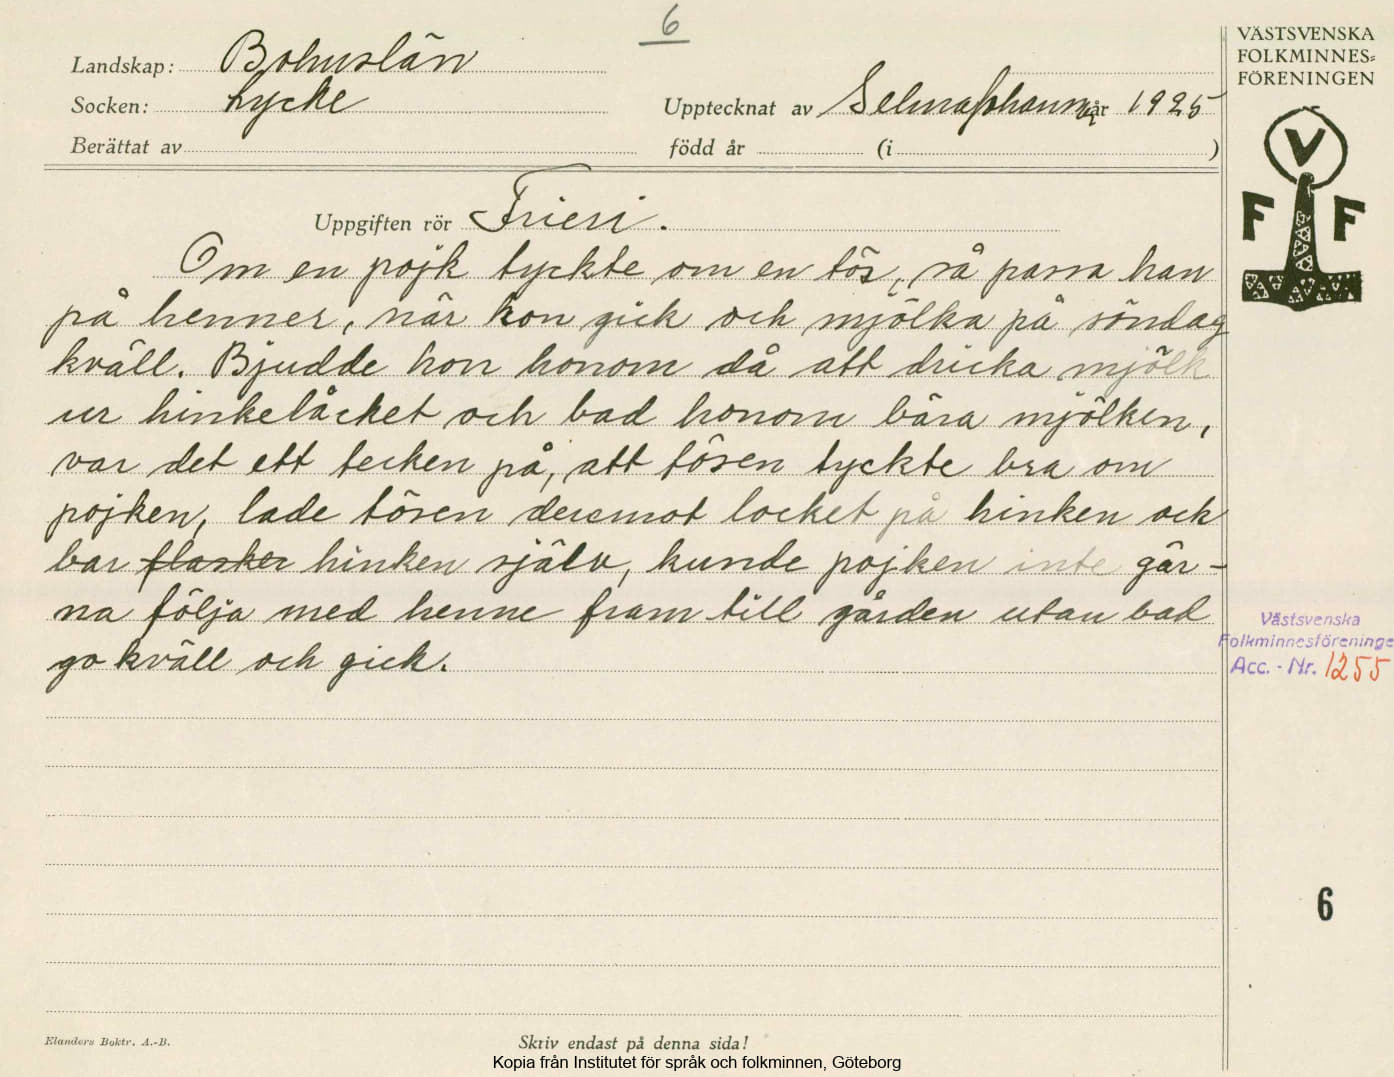 6
VÄSTSVENSKA
FOLKMINNES=
FÖRENINGEN
Landskap: Bohuslän
Socken: Lycke
Upptecknat av Selma Johansson år 1925
Berättat av
född år (i )
V
F F
Uppgiften rör Frieri.
Om en pojk tyckte om en tös, så passa han
på henner, när hon gick och mjölka på söndag
kväll. Bjudde hon honom då att dricka mjölk
ur hinkelåcket och bad honom bära mjölken,
var det ett tecken på, att tösen tyckte bra om
pojken, lade tösen deremot locket på hinken och
bar flasker hinken själv, kunde pojken inte gär-
na följa med henne fram till gården utan bad
go kväll och gick.
Västsvenska
Folkminnesföreninge
Acc. - Nr. 1255
6
Elanders Boktr. A.-B.
Skriv endast på denna sida!
Kopia från Institutet för språk och folkminnen, Göteborg